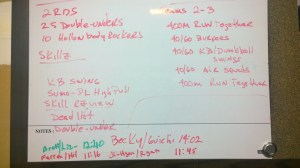 2 RDS
25 Double-unders
10 Hollow body Rockers
Skillz
KB Swing
Sumo-DL High Pull
Skill Review
Deadlift
Double-under
2-3
400m Run Together
10/60 Burpees
10/60 KB/Dumbbell
Swings
10/60 Air Squats
400m Run Together
NOTES:
12:40 Becky/ 14:02
11:45